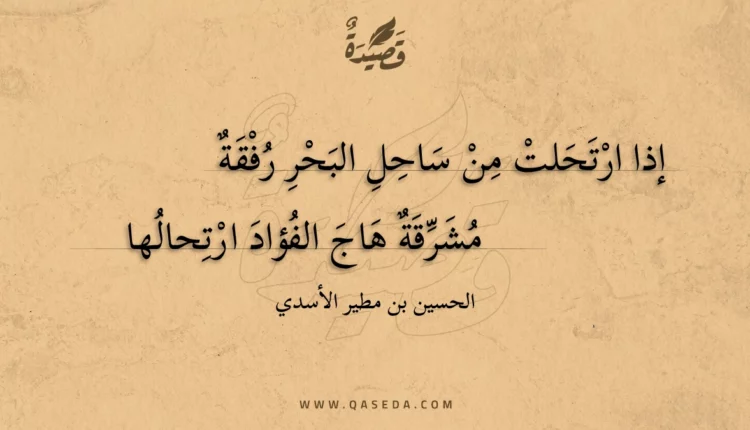 قَصِيْدَةٌ
إذا ارْتَحَلتْ مِنْ سَاحِلِ البَحْرِ رُفْقَةٌ
مُشَرِّقَةٌ هَاجَ الفُؤادَ ارْتِحالُها
الحسين بن مطير الأسدي
WWW.QASEDA.COM